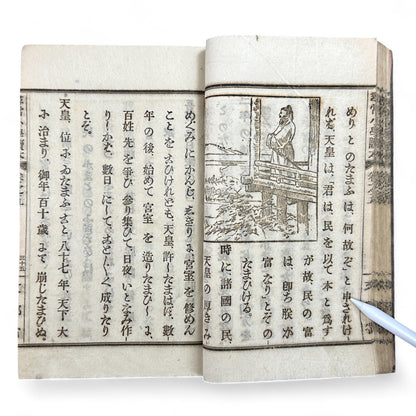 めりとのたまふは、何故ぞ」と申されけ
れば、天皇は、「君は、民を以て本と爲す
が故、民の富
は、即ち朕が
富なり」とぞの
たまひける。
時に諸國の民、
天皇の厚きみ
めぐみにかんじ、しきりに宮室を修めん
ことをこひけれども、天皇、許したまはず、數
年の後、始めて宮室を造りたまひしに、
百姓先を爭ひ、參り集ひて、日夜、いとなみ作
りしかば、數日にして、ことごとく成りたり
とぞ。
天皇、位にゐたまふこと八十七年、天下大
に治まり、御年一百十歳にて、崩じたまひぬ。